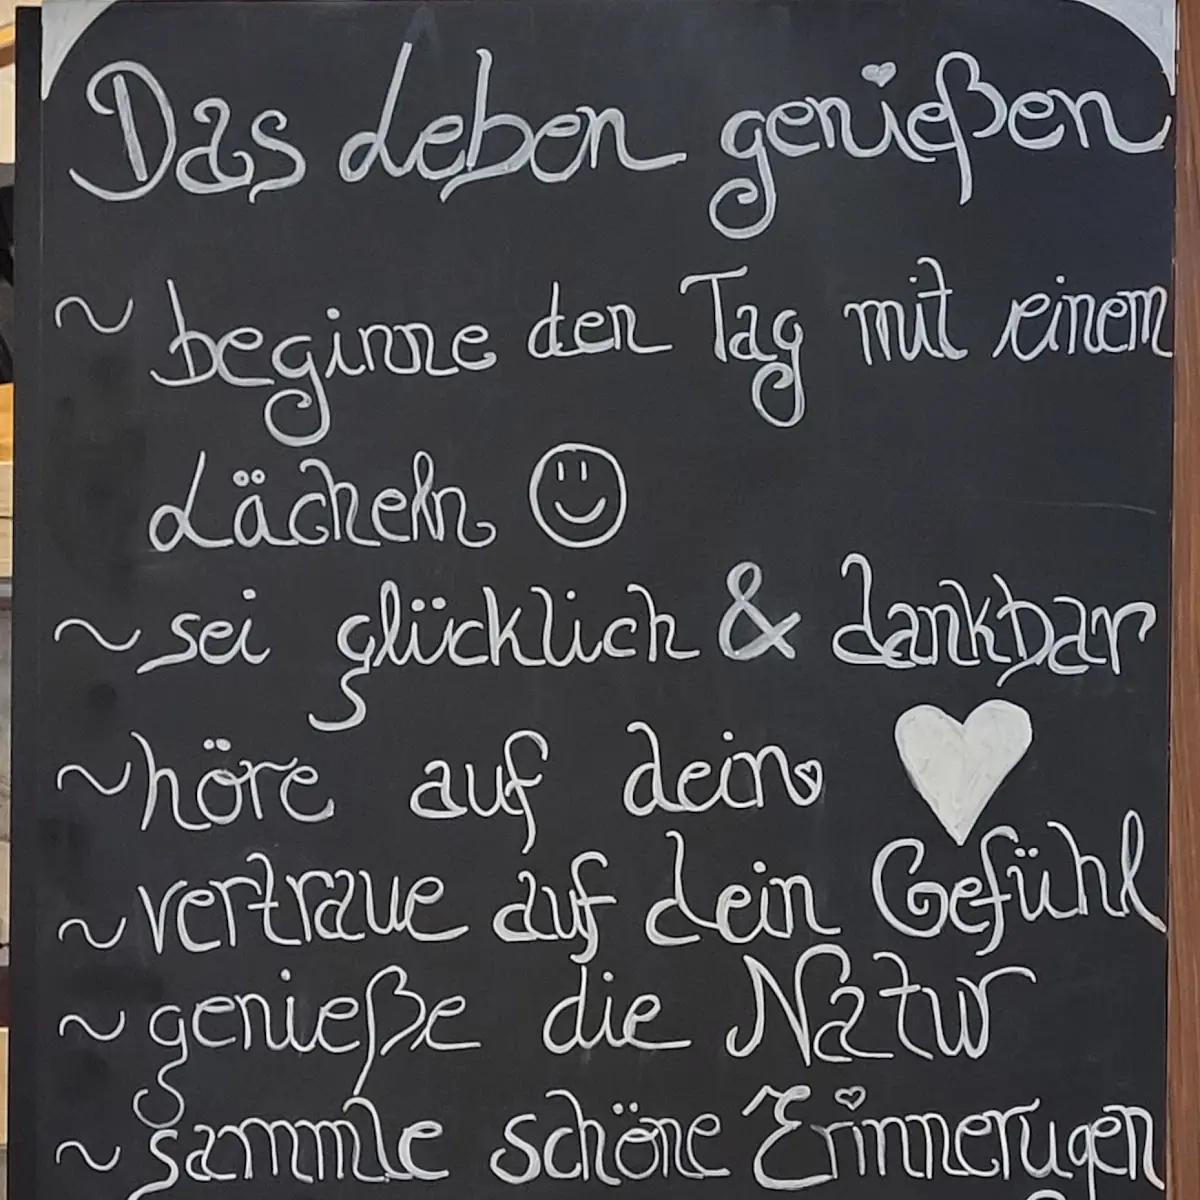 Das Leben genießen
~ beginne den Tag mit einem
Lächeln ☺
~ sei glücklich & dankbar
~ höre auf dein ♥
~ vertraue auf dein Gefühl
~ genieße die Natur
~ sammle schöne Erinnerugen